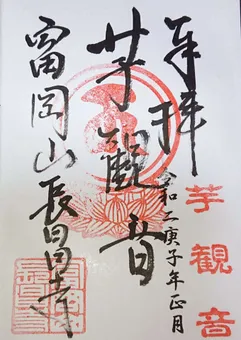 奉拝
令和二庚子年正月
芋観音
芋觀音
富岡山長昌寺